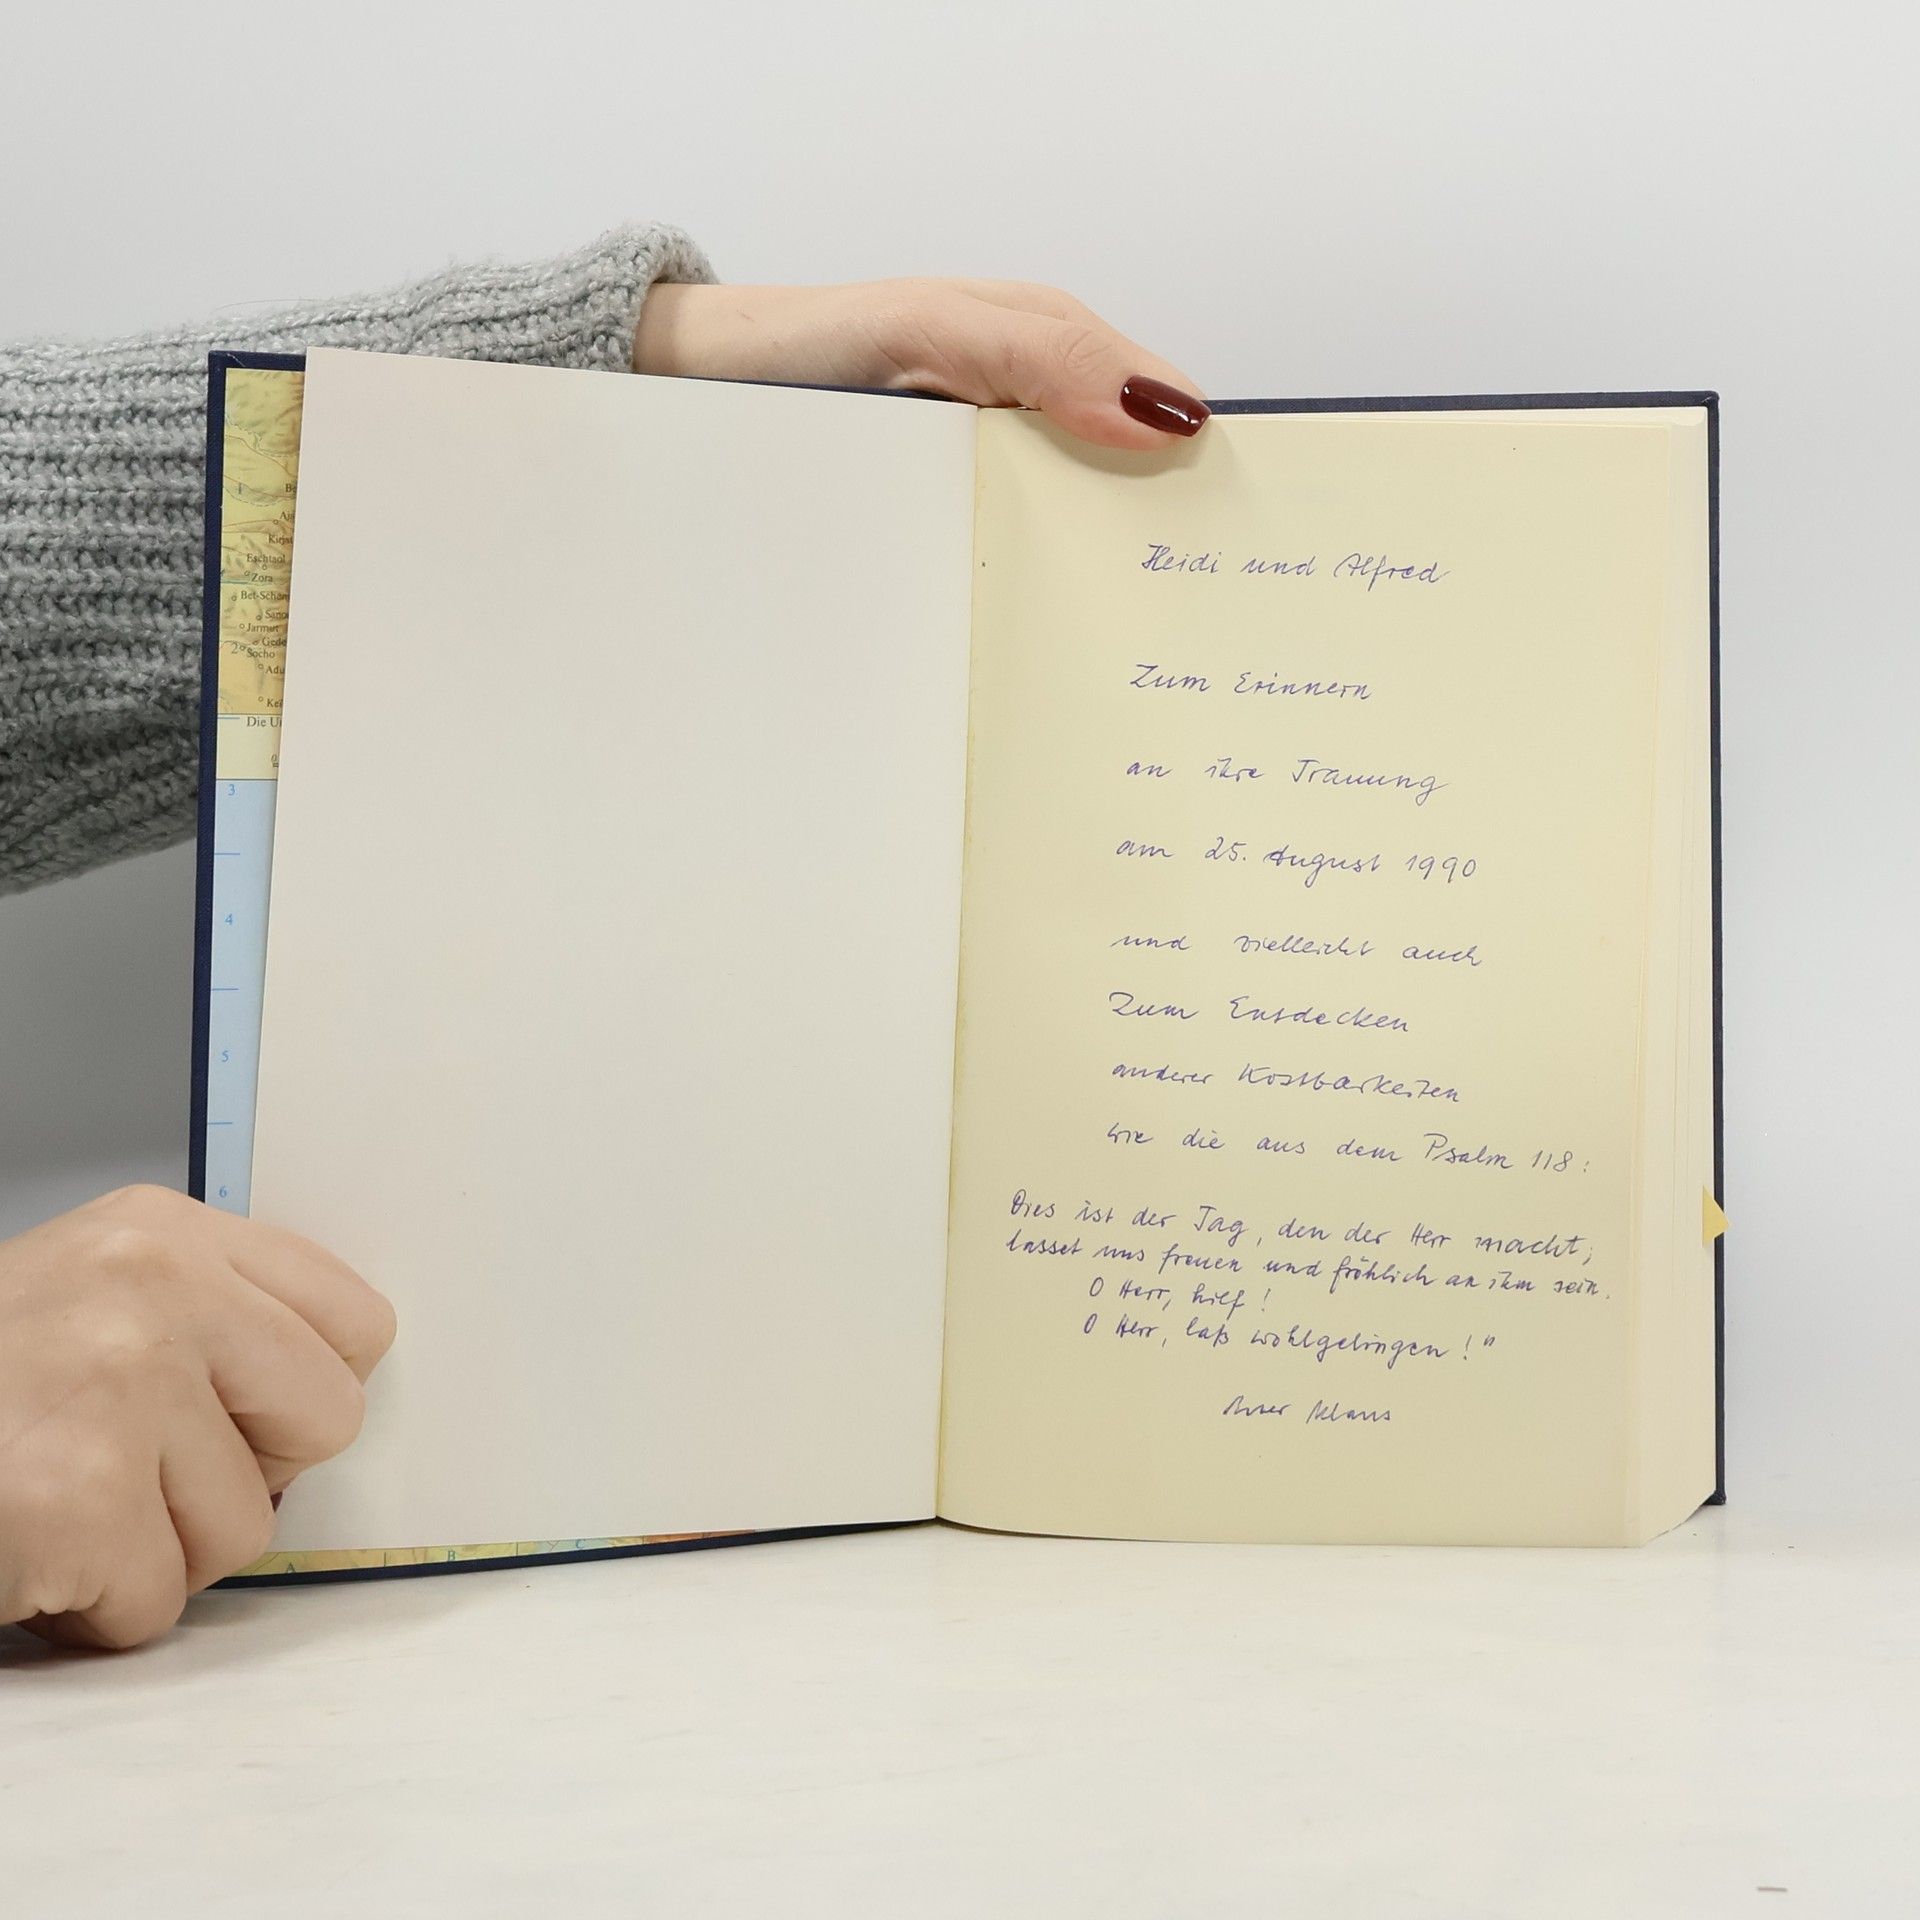 1
Eschtaol
Zora
Jarmut
2
Socho
3
4
5
6
A
B
C
Heidi und Alfred
Zum Erinnern
an ihre Trauung
am 25. August 1990
und vielleicht auch
Zum Entdecken
anderer Kostbarkeiten
wie die aus dem Psalm 118:
Dies ist der Tag, den der Herr macht;
lasset uns freuen und fröhlich an ihm sein.
O Herr, hilf!
O Herr, laß wohlgelingen!"
Klaus